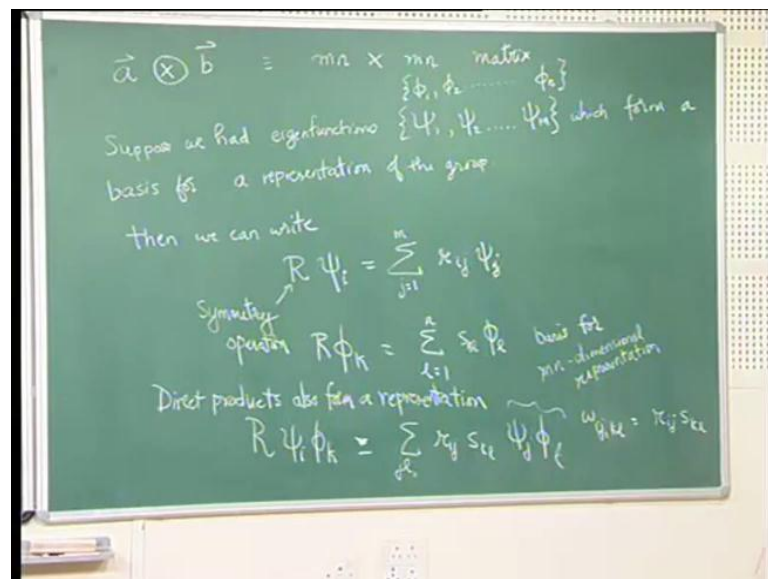 a⃗ ⊗ b⃗ ≡ mn × mn matrix
{ϕ₁, ϕ₂ ....... ϕₙ}
Suppose we had eigenfunctions {Ψ₁, Ψ₂ ..... Ψₘ} which form a
basis for a representation of the group
then we can write
R ψᵢ = ∑_{j=1}^{m} r_{ij} ψⱼ
Symmetry
operator R ϕₖ = ∑_{l=1}^{n} s_{kl} ϕ_l basis for
mn-dimensional
representation
Direct products also form a representation
R ψᵢ ϕₖ = ∑_{jl} r_{ij} s_{kl} ψⱼ ϕ_l ω_{ij,kl} = r_{ij} s_{kl}